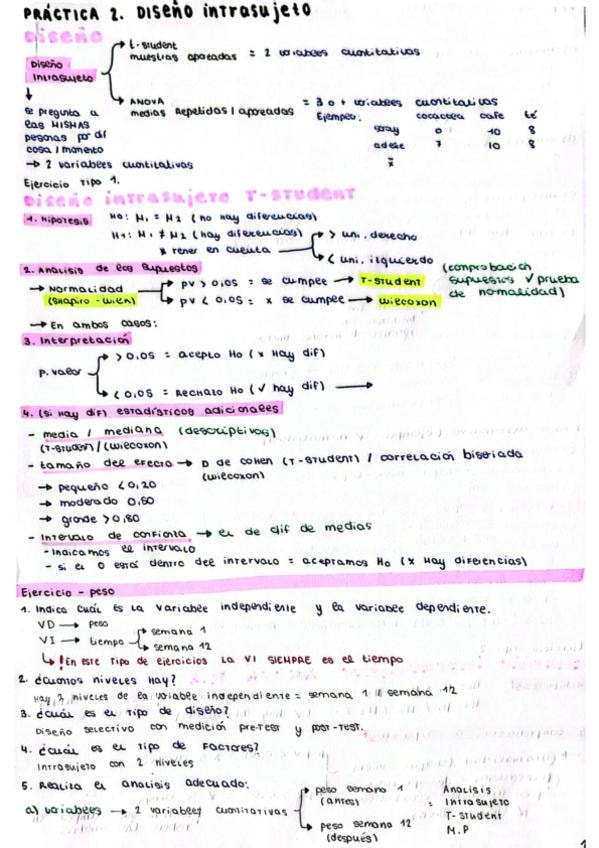 PRÁCTICA 2. Diseño intrasujeto
Diseño
Diseño intrasujeto
t-student muestras apareadas = 2 variables cuantitativas
ANOVA medias Repetidas / apareadas = 3 o + variables cuantitativas
se pregunta a las MISMAS personas por dif cosa / momento
→ 2 variables cuantitativas
Ejemplo: cocacola cafe té
soray 0 10 8
adele 7 10 8
x̄
Ejercicio Tipo 1.
Diseño intrasujeto T-STUDENT
1. Hipotesis H0: M1 = M2 (no hay diferencias)
H1: M1 ≠ M2 (hay diferencias)
* tener en cuenta
> uni. derecho
< uni. izquierdo
2. Analisis de los supuestos
(comprobación supuestos √ prueba de normalidad)
→ Normalidad (Shapiro - Wilk)
pv > 0,05 = se cumple → T-student
pv < 0,05 = x se cumple → Wilcoxon
→ En ambos casos:
3. Interpretación
P. valor
> 0,05 = acepto Ho (x hay dif)
< 0,05 = Rechazo Ho (√ hay dif) →
4. (si hay dif) estadísticos adicionales
- media / mediana (descriptivos)
(T-student) / (Wilcoxon)
- tamaño del efecto → D de cohen (T-student) / correlación biseriada (Wilcoxon)
→ pequeño < 0,20
→ moderado 0,50
→ grande > 0,80
- Intervalo de confianza → el de dif de medias
- Indicamos el intervalo
- si el 0 está dentro del intervalo = aceptamos Ho (x hay diferencias)
Ejercicio - peso
1. Indica cuál es la variable independiente y la variable dependiente.
VD → peso
VI → tiempo
semana 1
semana 12
! En este tipo de ejercicios la VI SIEMPRE es el tiempo
2. ¿Cuántos niveles hay?
Hay 2 niveles de la variable independiente = semana 1 || semana 12
3. ¿cuál es el tipo de diseño?
Diseño selectivo con medición pre-test y post-test.
4. ¿cuál es el tipo de factores?
Intrasujeto con 2 niveles
5. Realiza el analisis adecuado:
a) variables → 2 variables cuantitativas
peso semana 1 (antes)
peso semana 12 (después)
= Análisis Intrasujeto T-student M.P
1